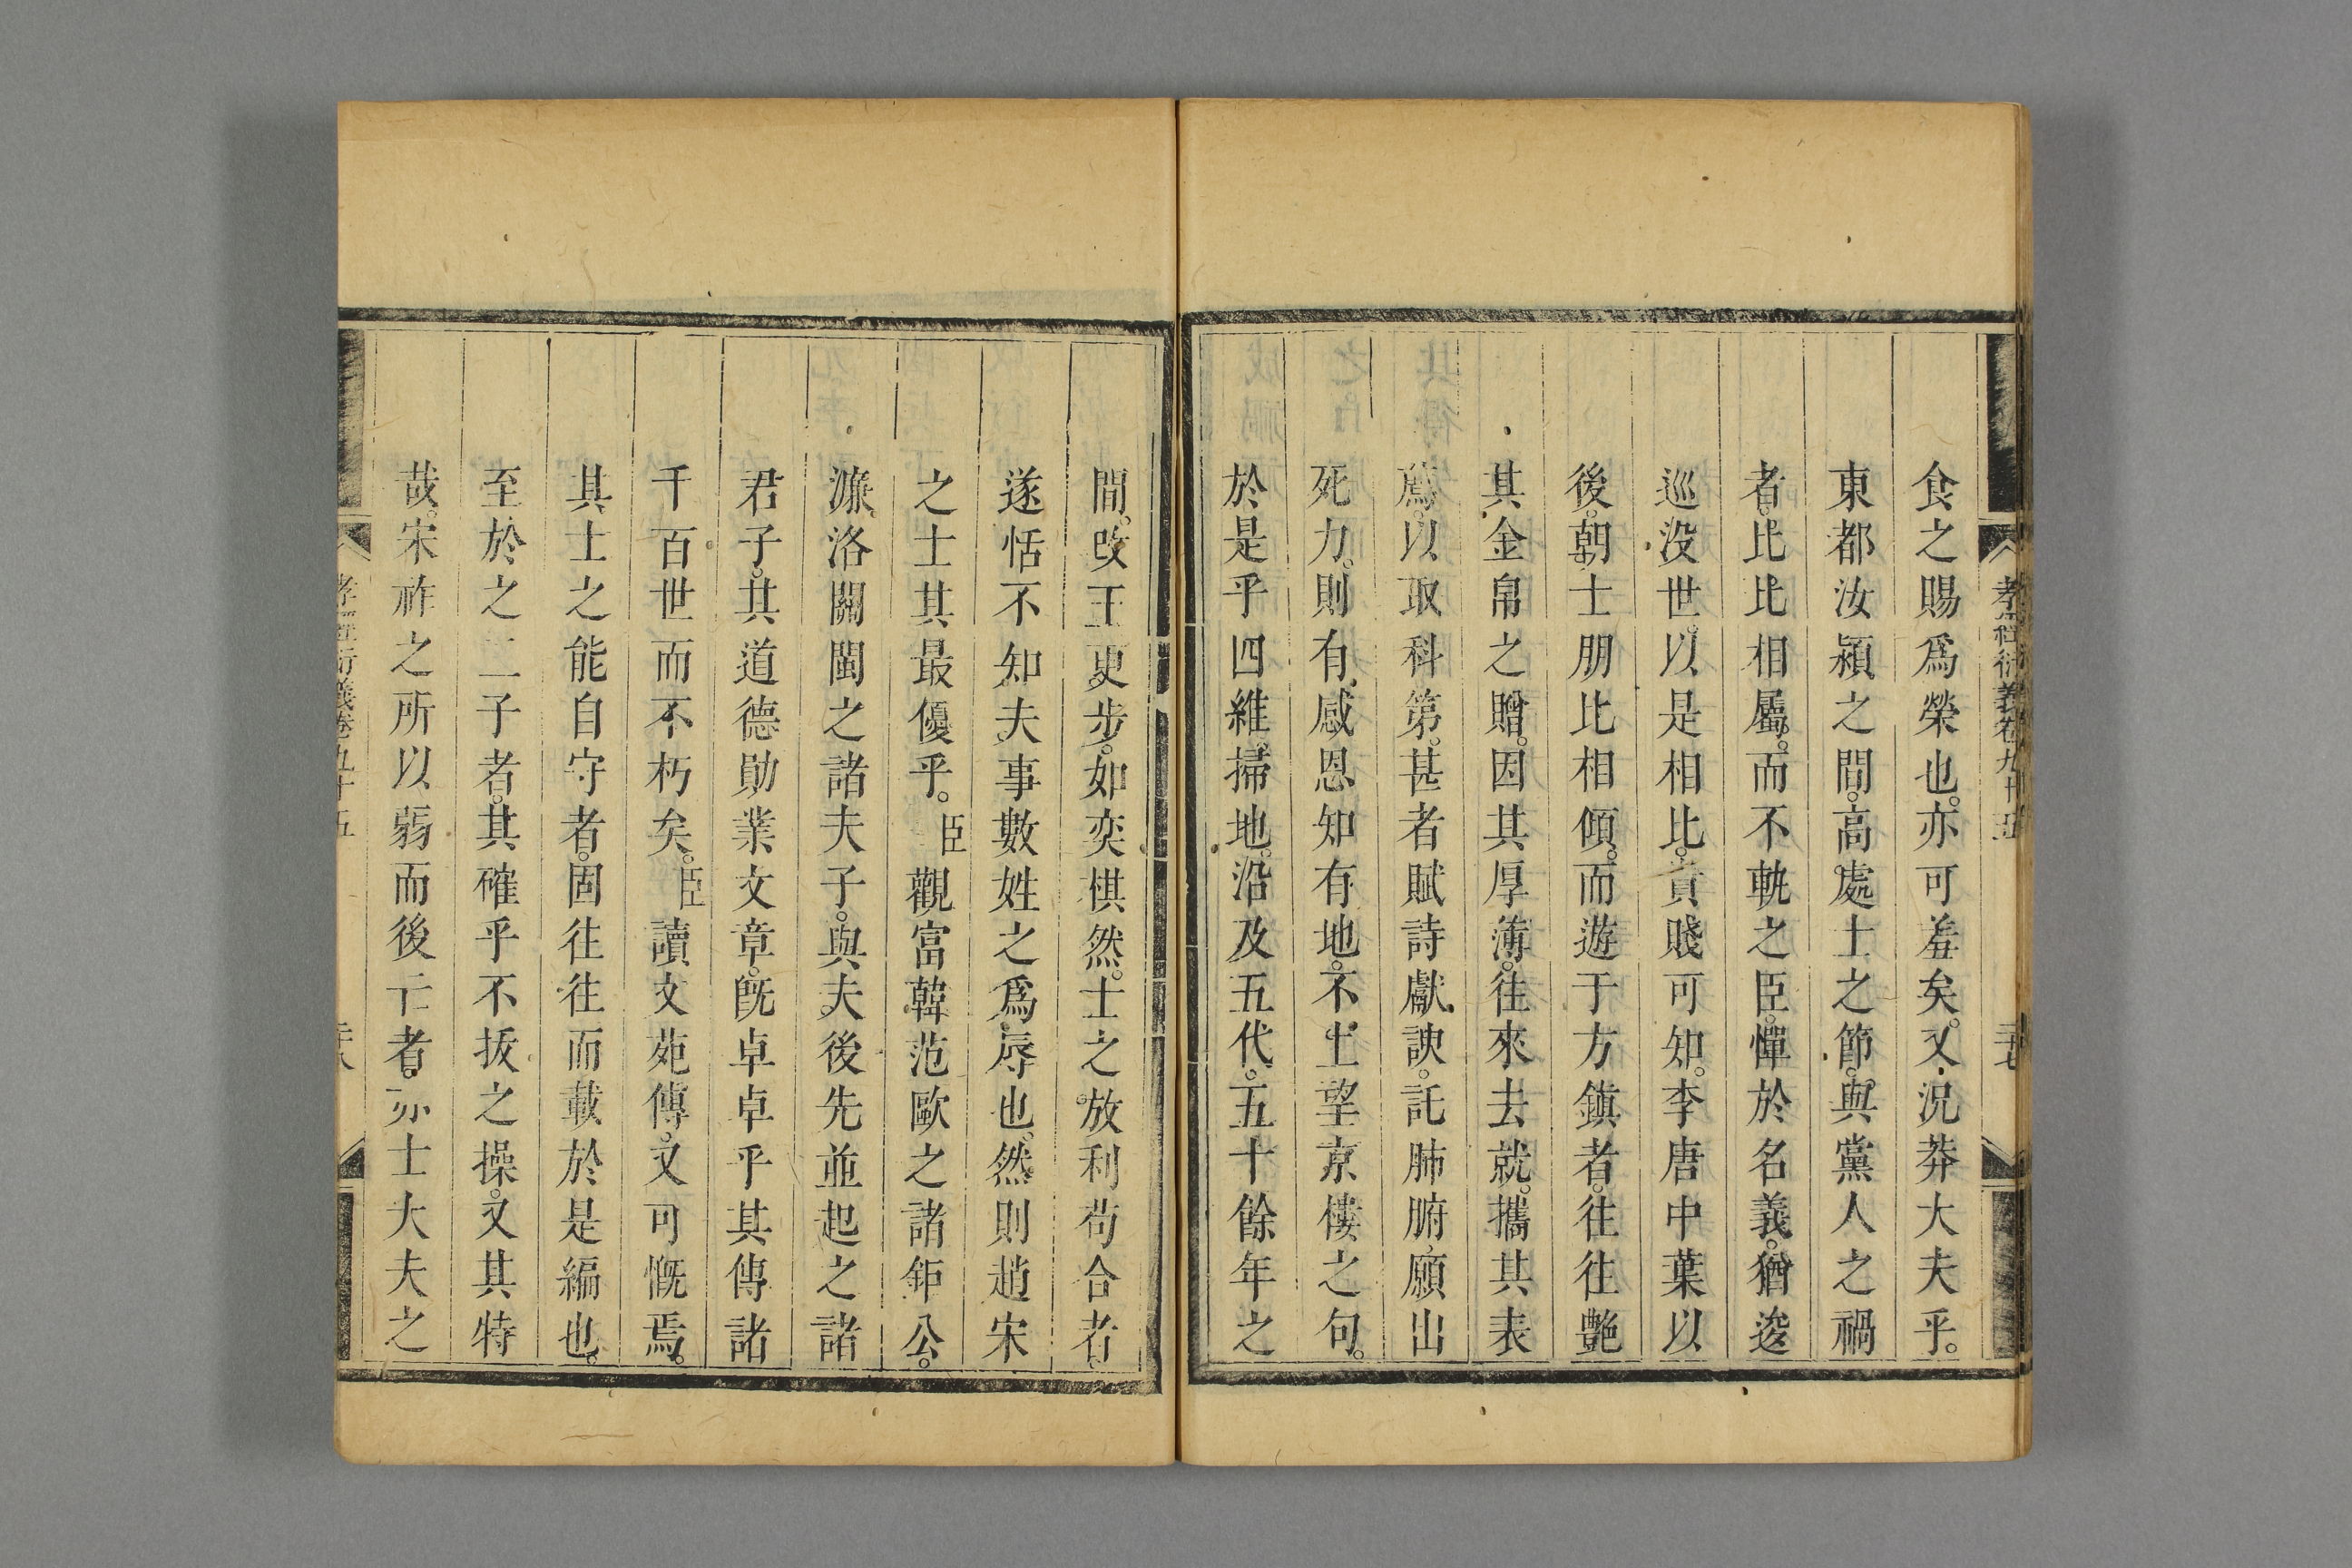 孝經衍義卷九十五
食之賜爲榮也。亦可羞矣。又況莽大夫乎。
東都汝潁之間。高處士之節。與黨人之禍
者。比比相屬。而不軌之臣。憚於名義。猶逡
巡没世。以是相比。貴賤可知。李唐中葉以
後。朝士朋比相傾。而遊于方鎭者。往往艷
其金帛之贈。因其厚薄。往來去就。攜其表
薦。以取科第。甚者賦詩獻諛。託肺腑。願出
死力。則有感恩知有地。不上望京樓之句。
於是乎四維掃地。沿及五代。五十餘年之
間。改王更步。如奕棋然。士之放利苟合者。
遂恬不知夫事數姓之爲辱也。然則趙宋
之士其最優乎。臣觀富韓范歐之諸鉅公。
濂洛關閩之諸夫子。與夫後先並起之諸
君子。其道德勛業文章。旣卓卓乎其傳諸
千百世而不朽矣。臣讀文苑傳。又可慨焉。
其士之能自守者。固往往而載於是編也。
至於之二子者。其確乎不拔之操。又其特
哉。宋祚之所以弱而後亡者。亦士大夫之
孝經衍義卷九十五